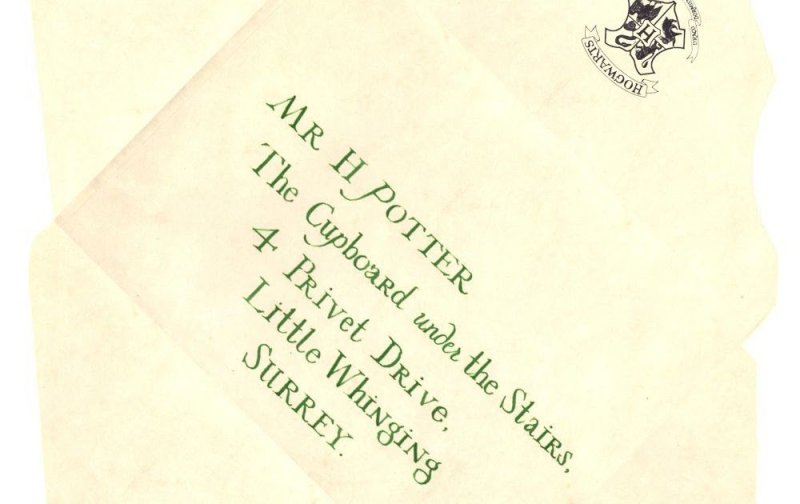 MR H POTTER
The Cupboard under the Stairs,
4 Privet Drive,
Little Whinging
SURREY.
HOGWARTS